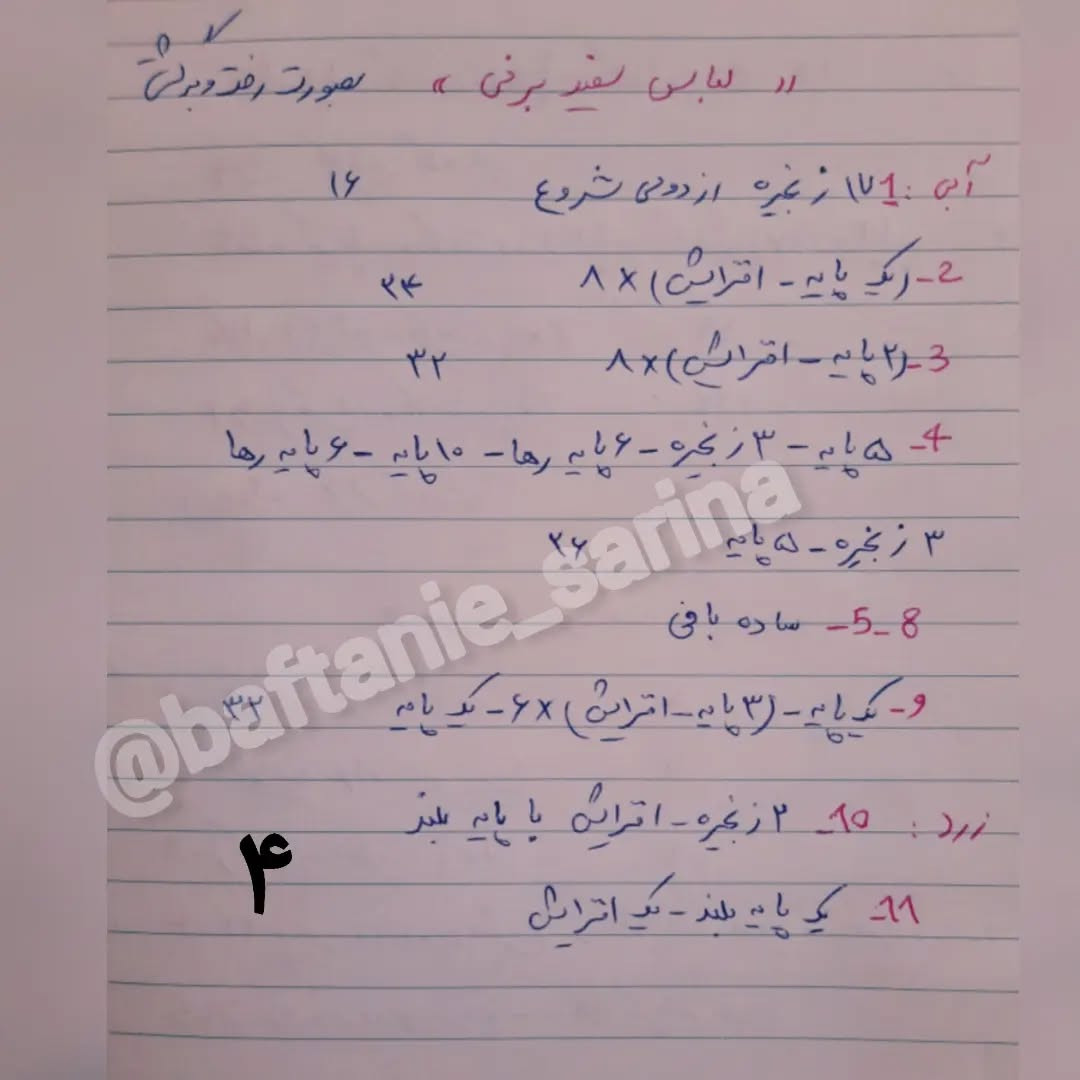 « لباس سفید برفی » بصورت رفت و برگشتی
آبی: 1_ ۱۷ زنجیره از دومی شروع ۱۶
2_ (یک پایه - افزایش) × ۸ ۲۴
3_ (۲ پایه - افزایش) × ۸ ۳۲
4_ ۵ پایه - ۳ زنجیره - ۶ پایه رها - ۱۰ پایه - ۶ پایه رها
۳ زنجیره - ۵ پایه ۲۶
5_8_ ساده بافی
9_ یک پایه - (۳ پایه - افزایش) × ۶ - یک پایه ۳۲
زرد: 10_ ۲ زنجیره - افزایش با پایه بلند
11_ یک پایه بلند - یک افزایش
۴
@baftanie_sarina